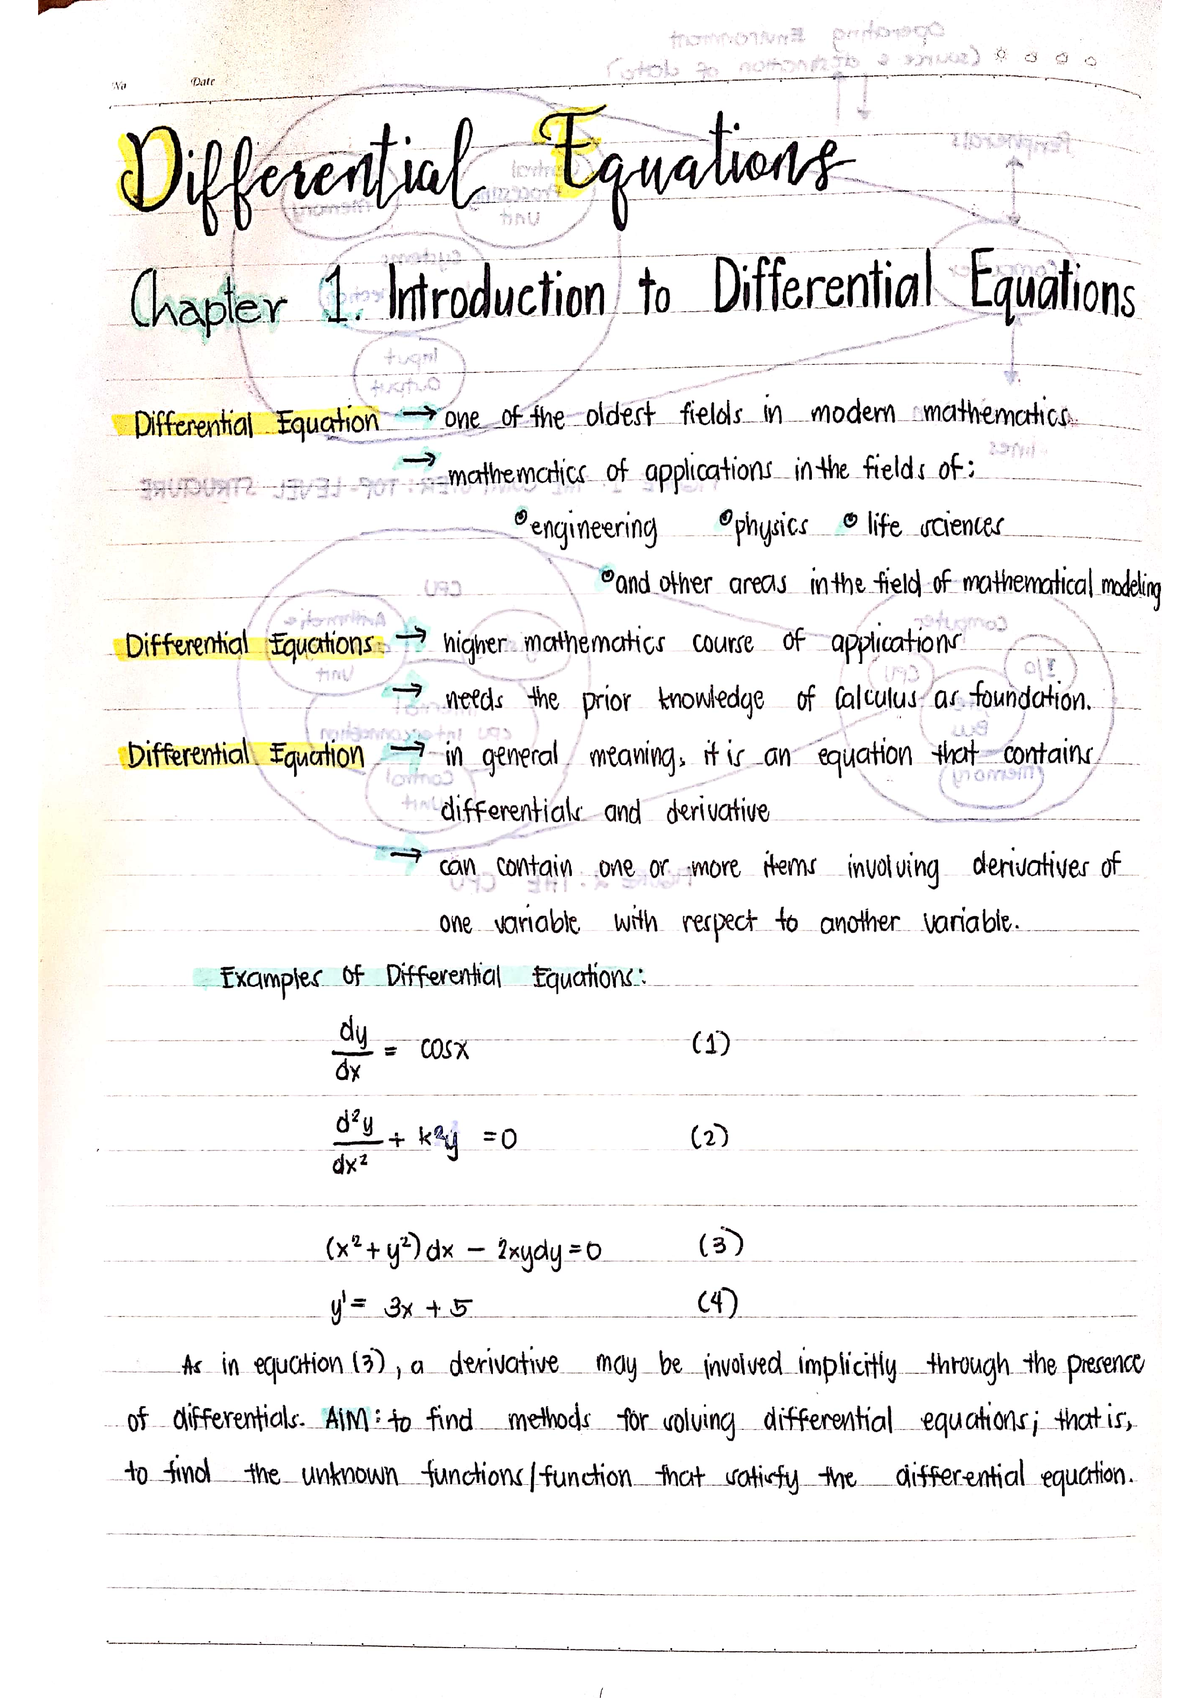 No Date
Differential Equations
Chapter 1. Introduction to Differential Equations
Differential Equation → one of the oldest fields in modern mathematics.
→ mathematics of applications in the fields of:
engineering physics life sciences
and other areas in the field of mathematical modeling
Differential Equations → higher mathematics course of applications
→ needs the prior knowledge of Calculus as foundation.
Differential Equation → in general meaning, it is an equation that contains
differentials and derivative
→ can contain one or more items involving derivatives of
one variable with respect to another variable.
Examples of Differential Equations:
dy/dx = cosx (1)
d²y/dx² + k²y = 0 (2)
(x² + y²) dx - 2xydy = 0 (3)
y' = 3x + 5 (4)
As in equation (3), a derivative may be involved implicitly through the presence
of differentials. AIM: to find methods for solving differential equations; that is,
to find the unknown functions/function that satisfy the differential equation.